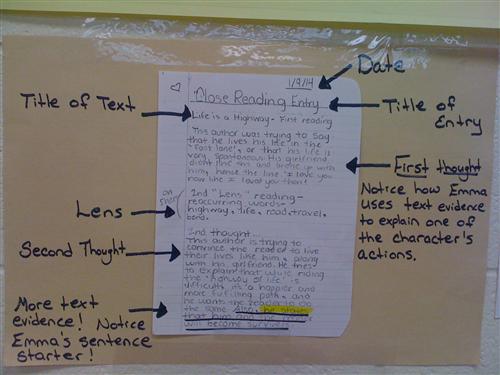 1/9/14
Date
Close Reading Entry
Title of Entry
Title of Text
Life is a Highway - First reading
This author was trying to say
that he lives his life in the
"fast lane", or that his life is
very spontaneous. His girlfriend
didnt like this and broke up with
him, hence the line "I love you
now like I loved you then!
First thought
Notice how Emma
uses text evidence
to explain one of
the character's
actions.
Lens
2nd "Lens" reading-
reoccurring words-
highway, life, road, travel,
bend.
Second Thought
2nd thought...
This author is trying to
convince the reader to live
their lives like him, along
with his girlfriend. He tries
to explain that while riding
the "highway of life" is
difficult, its a happier and
more fulfilling path, and
he wants the reader to do
the same. Also, he states
that him and the
will become survivors
More text
evidence! Notice
Emma's sentence
starter!